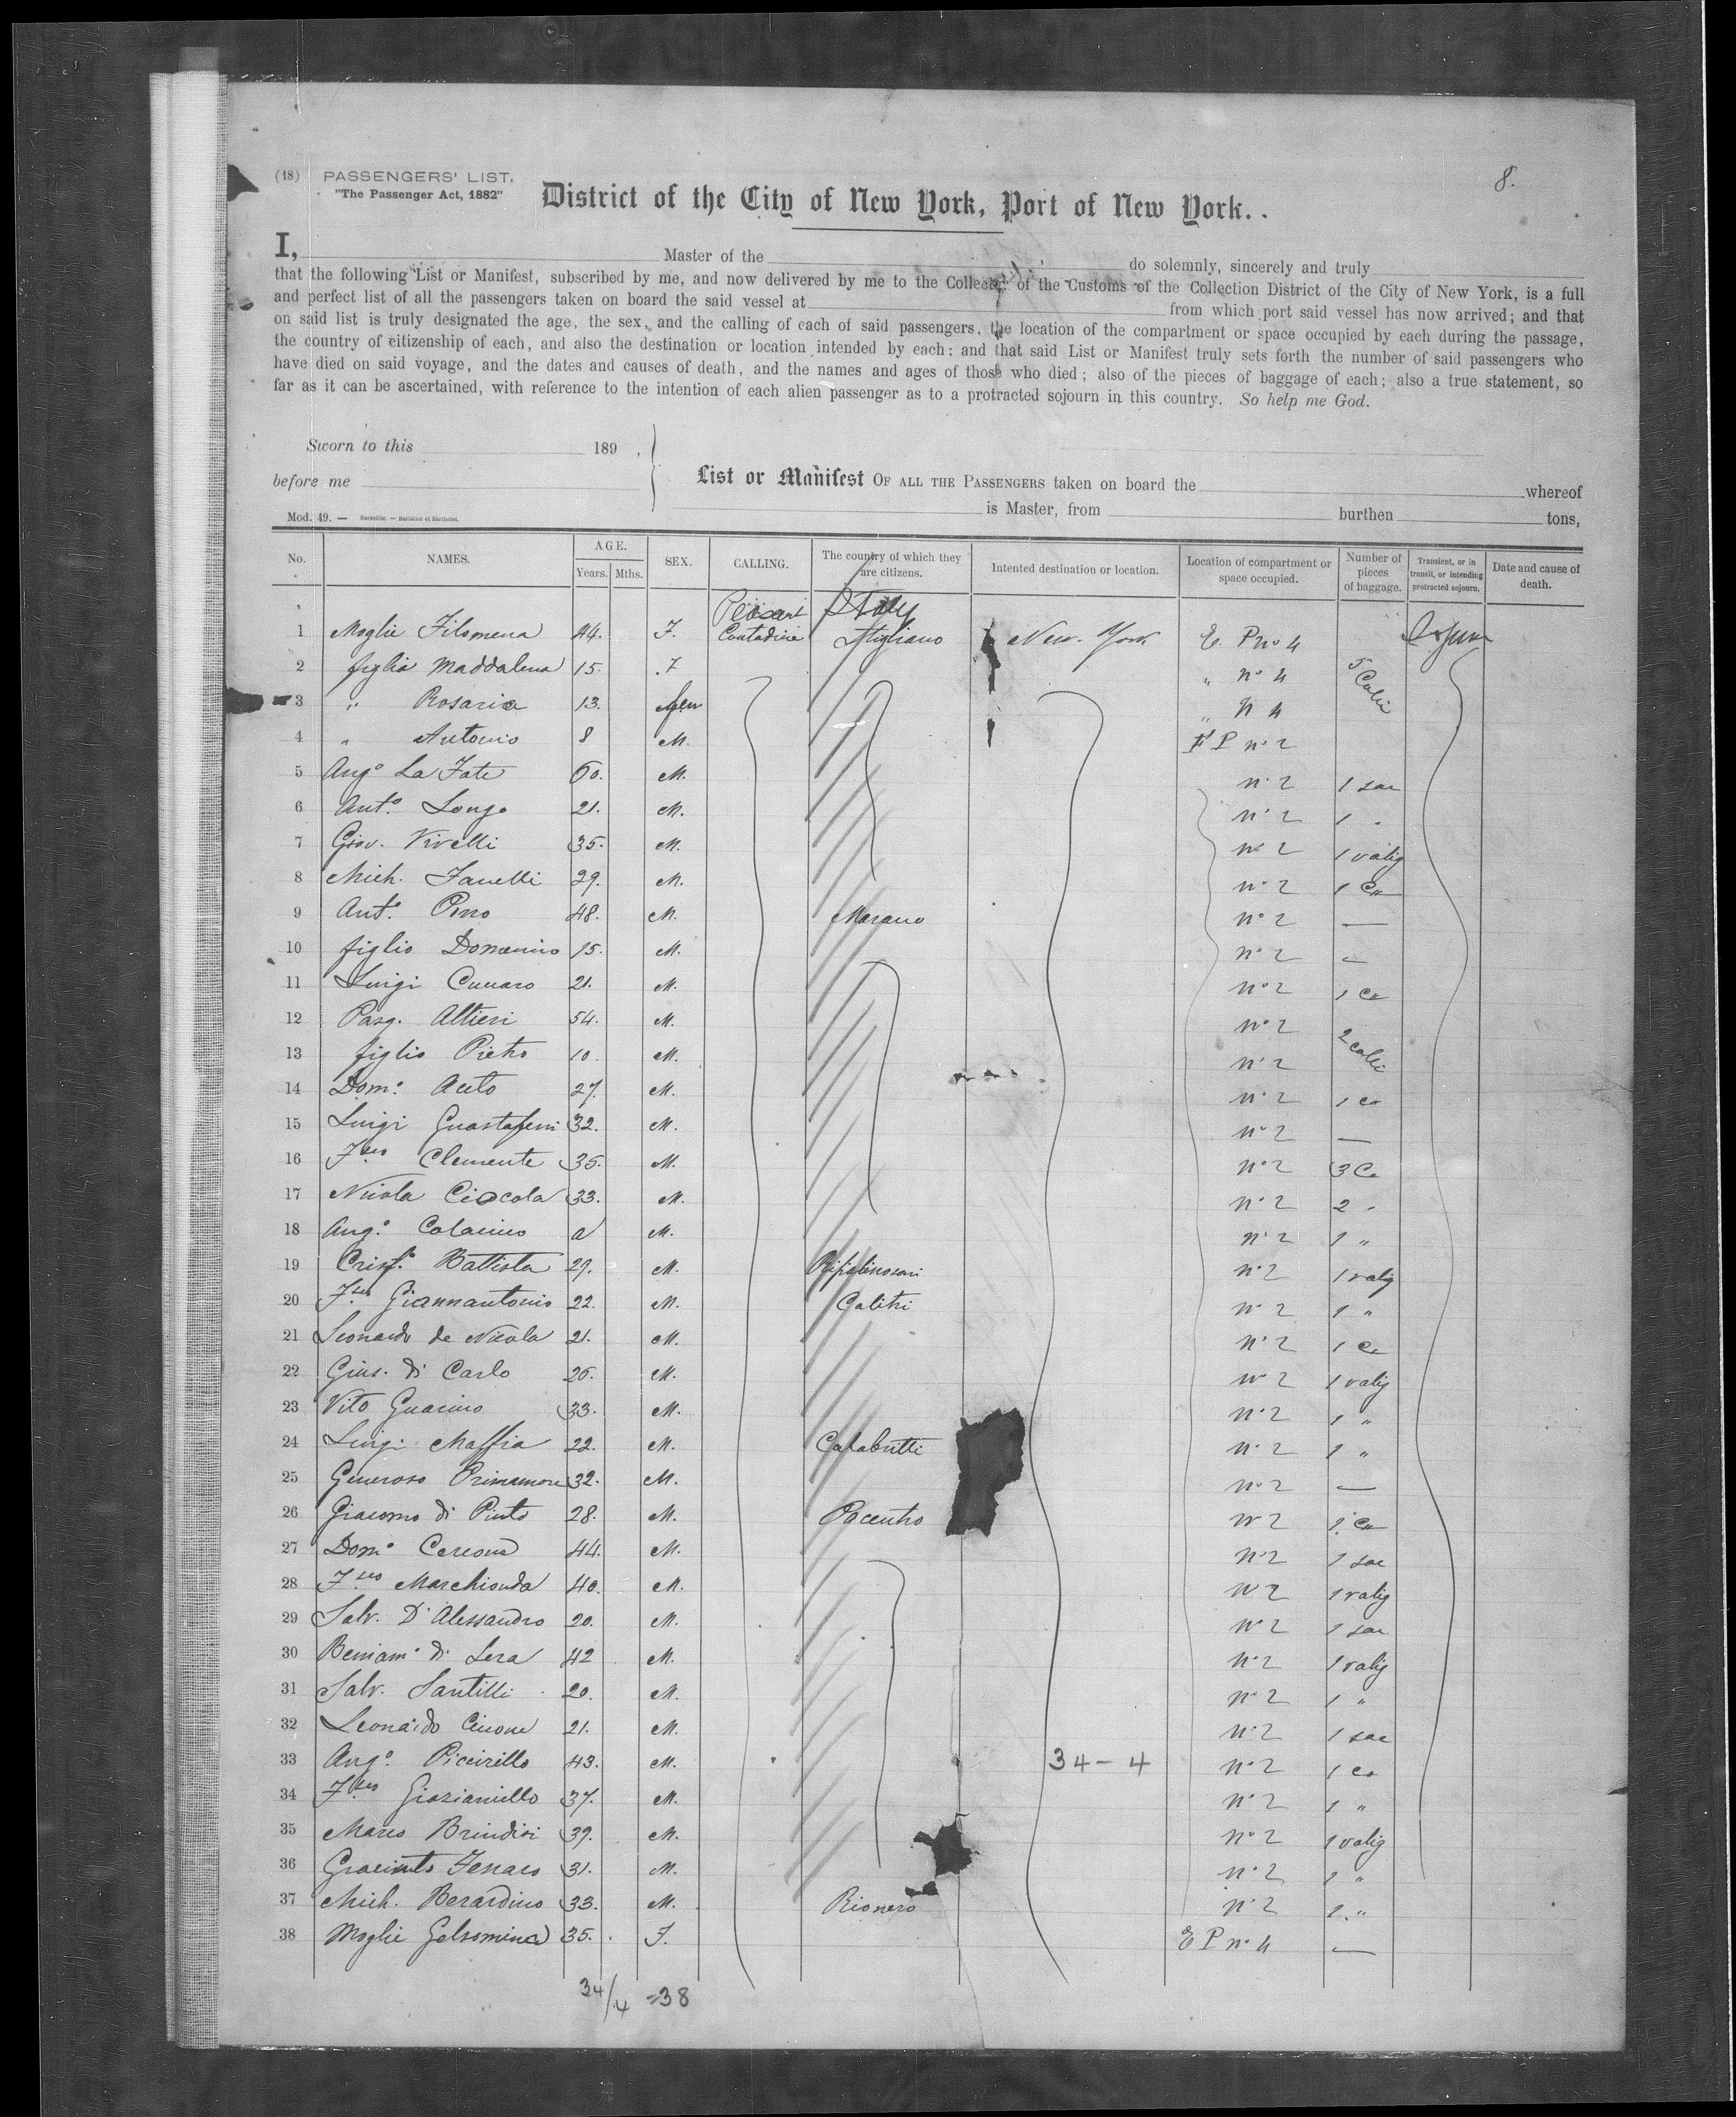 8.
(18) PASSENGERS' LIST.
"The Passenger Act, 1882"
District of the City of New York, Port of New York.
I, Master of the do solemnly, sincerely and truly
that the following List or Manifest, subscribed by me, and now delivered by me to the Collector of the Customs of the Collection District of the City of New York, is a full
and perfect list of all the passengers taken on board the said vessel at from which port said vessel has now arrived; and that
on said list is truly designated the age, the sex, and the calling of each of said passengers, the location of the compartment or space occupied by each during the passage,
the country of citizenship of each, and also the destination or location intended by each: and that said List or Manifest truly sets forth the number of said passengers who
have died on said voyage, and the dates and causes of death, and the names and ages of those who died; also of the pieces of baggage of each; also a true statement, so
far as it can be ascertained, with reference to the intention of each alien passenger as to a protracted sojourn in this country. So help me God.
Sworn to this 189 ,
before me
List or Manifest OF ALL THE PASSENGERS taken on board the whereof
is Master, from burthen tons,
Mod. 49. — Marseille. — Barlatier et Barthelet.
No. NAMES. AGE. Years. Mths. SEX. CALLING. The country of which they are citizens. Intented destination or location. Location of compartment or space occupied. Number of pieces of baggage. Transient, or in transit, or intending protracted sojourn. Date and cause of death.
Peasant Italy
1 Moglie Filomena 44. F. Contadina Stigliano New-York E. P nº 4
2 figlia Maddalena 15. F " nº 4 5 Colli
3 " Rosaria 13. " N 4
4 " Antonio 8 M. F P nº 2
5 Ang.º La Fate 60. M. nº 2 1 sac
6 Ant.º Longo 21. M. nº 2 1 "
7 Giov. Vivelli 35. M. nº 2 1 valig
8 Mich. Fanelli 29. M. nº 2 1 Ca
9 Ant.º Pino 48. M. Marano nº 2 —
10 figlio Domenico 15. M. nº 2 —
11 Luigi Cunaro 21. M. nº 2 1 Ca
12 Pasq. Altieri 54. M. nº 2 2 colli
13 figlio Pietro 10. M. nº 2
14 Dom.º Aceto 27. M. nº 2 1 Ca
15 Luigi Guastaferri 32. M. nº 2 —
16 F.sco Clemente 35. M. nº 2 3 Ca
17 Nicola Ciocola 33. M. nº 2 2 "
18 Ang.º Colarino M. nº 2 1 "
19 Crisf.º Battista 29. M. nº 2 1 valig
20 F.sco Giannantonio 22. M. Calitri nº 2 1 "
21 Leonardo de Nicola 21. M. nº 2 1 Ca
22 Gius. di Carlo 26. M. nº 2 1 valig
23 Vito Guarino 33. M. nº 2 1 "
24 Luigi Maffia 22. M. Calabritti nº 2 1 "
25 Generoso Primamore 32. M. nº 2 —
26 Giacomo di Pinto 28. M. Pacentro nº 2 1 Ca
27 Dom.º Cercone 44. M. nº 2 1 sac
28 F.sco Marchionda 40. M. nº 2 1 valig
29 Salv. D'Alessandro 20. M. nº 2 1 sac
30 Beniam.º di Lera 42 M. nº 2 1 valig
31 Salv. Santilli 20. M. nº 2 1 "
32 Leonardo Cirone 21. M. nº 2 1 sac
33 Ang.º Piccirillo 43. M. 34 – 4 nº 2 1 Ca
34 F.sco Giosianiello 37. M. nº 2 1 "
35 Marco Brindisi 39. M. nº 2 1 valig
36 Giacinto Fenaro 31. M. nº 2 1 "
37 Mich. Berardino 33. M. Rionero nº 2 1 "
38 Moglie Gelsomina 35. F. E P nº 4 —
34/4 =38